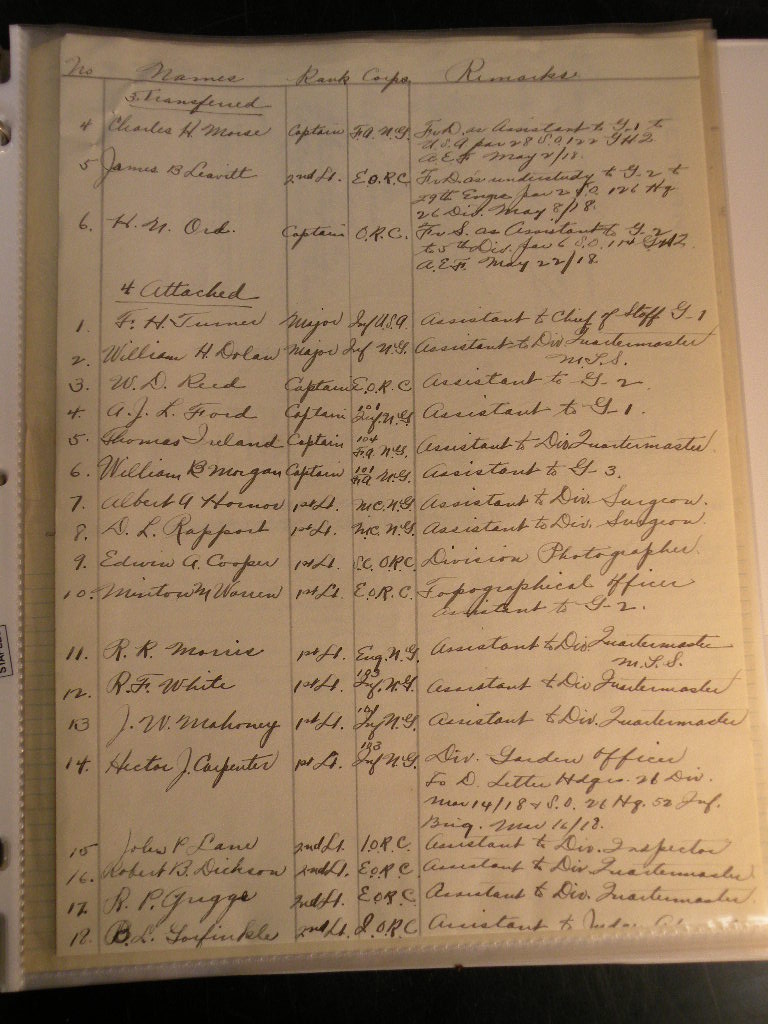 No Names Rank Corps Remarks
3. Transferred
4 Charles H. Morse Captain F.A. N.G. Fr. D. as Assistant to G.1 to
U.S.A par 28 S.O. 122 GH2
A.E.F. May 2/18.
5 James B Leavitt 2nd Lt. E.O.R.C Fr. D. as understudy to G-2 to
29th Engrs par 2 S.O. 126 Hq
26 Div. May 8/18.
6. H. N. Ord. Captain O.R.C. Fr. S. as Assistant to G.2
to 5th Div. par 6 S.O. 114 GH2
A.E.F. May 22/18
4 Attached
1. F. H. Turner Major Inf U.S.A. Assistant to Chief of Staff G-1
2. William H. Dolan Major Inf N.G. Assistant to Div. Quartermaster
M.T.S.
3. W. D. Reed Captain E.O.R.C Assistant to G-2.
4. A. J. L. Ford Captain 101 Inf. N.G Assistant to G-1.
5. Thomas Ireland Captain 104 F.A. N.G. Assistant to Div. Quartermaster.
6. William B Morgan Captain 101 F.A. N.G. Assistant to G-3.
7. Albert A Hornor 1st Lt. M.C. N.G. Assistant to Div. Surgeon.
8. D. L. Rapport 1st Lt. M.C. N.G. Assistant to Div. Surgeon.
9. Edwin A. Cooper 1st Lt. S.C. O.R.C. Division Photographer.
10. Minton M Warren 1st Lt. E.O.R.C. Topographical Officer
Assistant to G-2.
11. R. R. Morris 1st Lt. Eng. N.G. Assistant to Div. Quartermaster
M.T.S.
12. R. F. White 1st Lt. 103 Inf. N.G. Assistant to Div Quartermaster
13 J. W. Mahoney 1st Lt. 101 Inf N.G. Assistant to Div. Quartermaster
14. Hector J. Carpenter 1st Lt. 103 Inf N.G. Div. Garden Officer
Fo D. Letter Hdqrs. 26 Div.
Mar 14/18 & S.O. 26 Hq. 52 Inf.
Brig. Mar 16/18.
15 John P Lane 2nd Lt. I.O.R.C. Assistant to Div. Inspector
16. Robert B. Dickson 2nd Lt. E.O.R.C. Assistant to Div. Quartermaster
17 R. P. Griggs 2nd Lt. E.O.R.C Assistant to Div. Quartermaster.
18. B. L. 2nd Lt. I.O.R.C Assistant to Judge